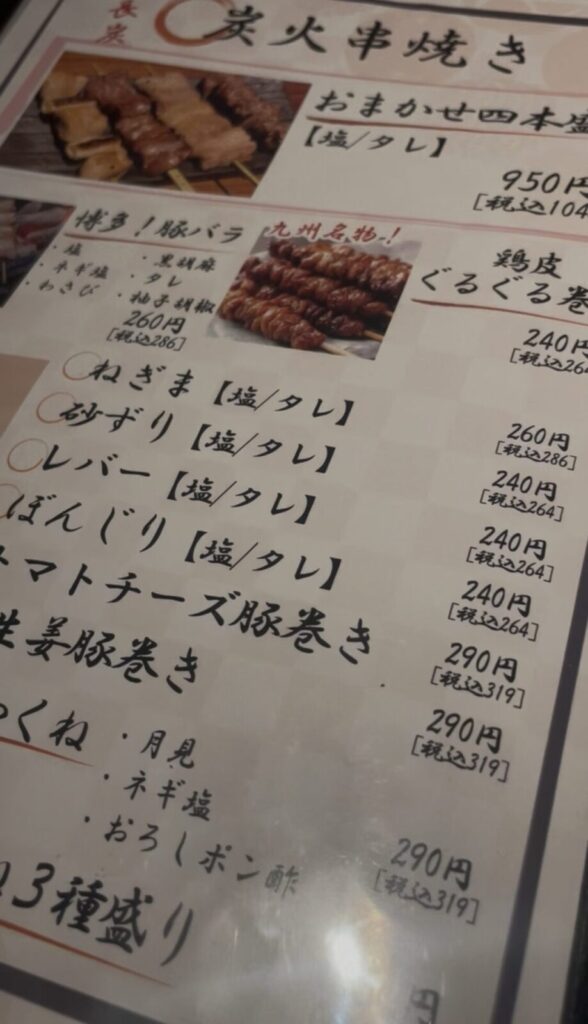 長炭
炭火串焼き
おまかせ四本盛
【塩/タレ】
950円
[税込104
博多！豚バラ
・塩
・ネギ塩
・わさび
・黒胡麻
・タレ
・柚子胡椒
260円
[税込286]
九州名物！
鶏皮
ぐるぐる巻
240円
[税込264
ねぎま【塩/タレ】
260円
[税込286]
砂ずり【塩/タレ】
240円
[税込264]
レバー【塩/タレ】
240円
[税込264]
ぼんじり【塩/タレ】
240円
[税込264]
トマトチーズ豚巻き
290円
[税込319]
生姜豚巻き
290円
[税込319]
つくね
・月見
・ネギ塩
・おろしポン酢
290円
[税込319]
3種盛り
円